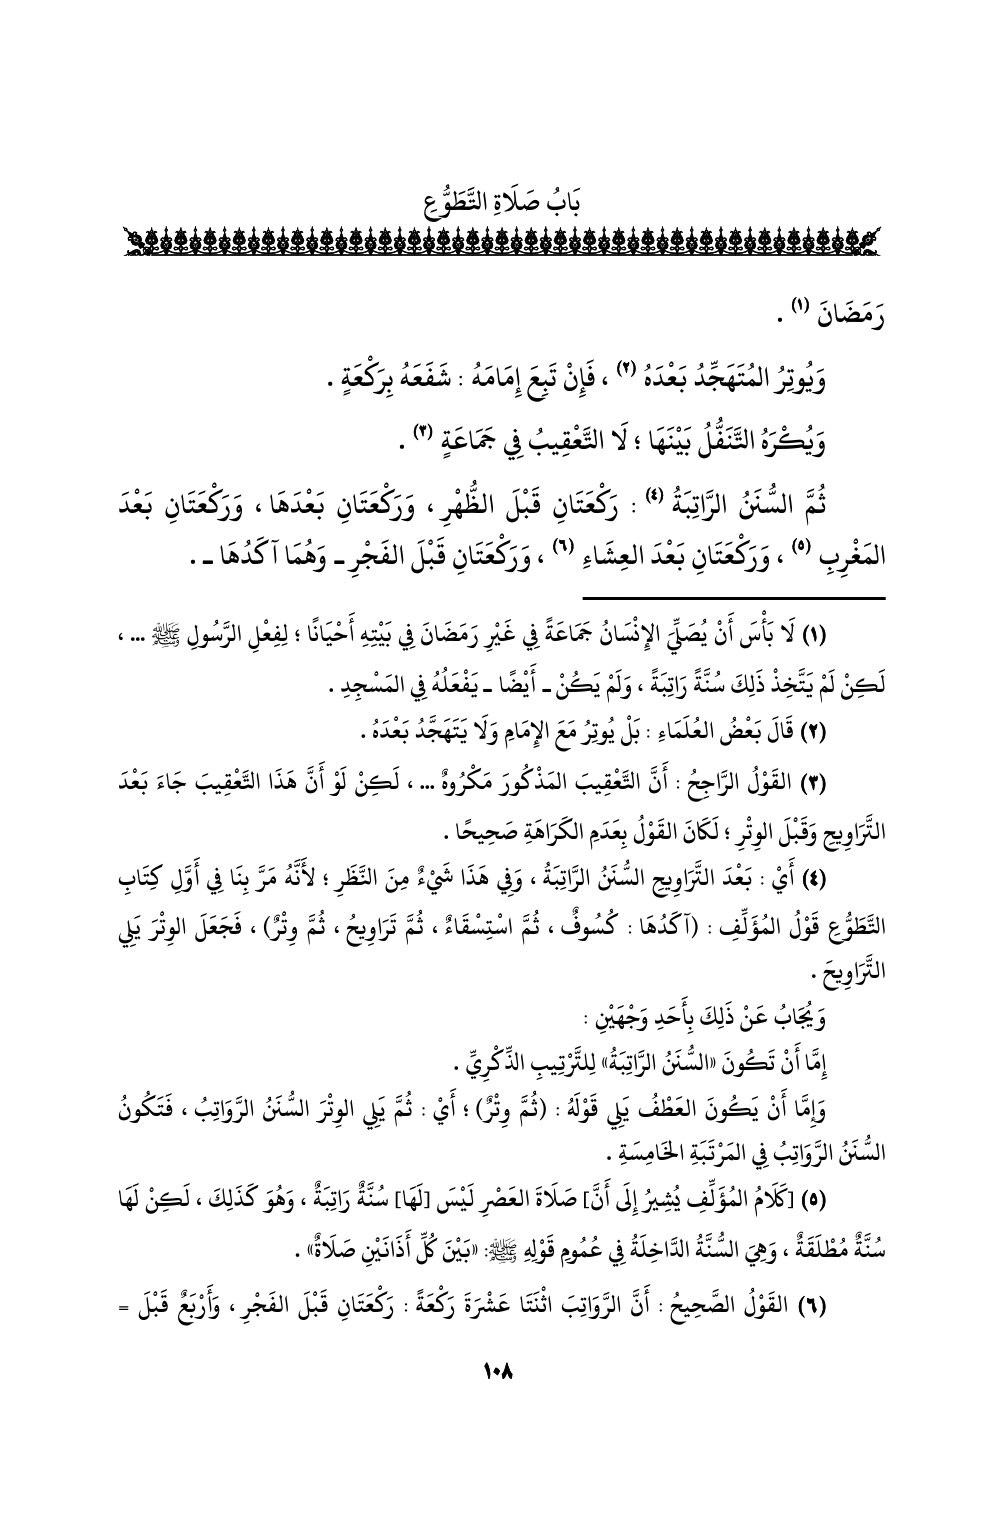 بَابُ صَلَاةِ التَّطَوُّعِ
رَمَضَانَ (١) .
وَيُوتِرُ المُتَهَجِّدُ بَعْدَهُ (٢) ، فَإِنْ تَبِعَ إِمَامَهُ : شَفَعَهُ بِرَكْعَةٍ .
وَيُكْرَهُ التَّنَفُّلُ بَيْنَهَا ؛ لَا التَّعْقِيبُ فِي جَمَاعَةٍ (٣) .
ثُمَّ السُّنَنُ الرَّاتِبَةُ (٤) : رَكْعَتَانِ قَبْلَ الظُّهْرِ ، وَرَكْعَتَانِ بَعْدَهَا ، وَرَكْعَتَانِ بَعْدَ
المَغْرِبِ (٥) ، وَرَكْعَتَانِ بَعْدَ العِشَاءِ (٦) ، وَرَكْعَتَانِ قَبْلَ الفَجْرِ ـ وَهُمَا آكَدُهَا ـ .
(١) لَا بَأْسَ أَنْ يُصَلِّيَ الإِنْسَانُ جَمَاعَةً فِي غَيْرِ رَمَضَانَ فِي بَيْتِهِ أَحْيَانًا ؛ لِفِعْلِ الرَّسُولِ ﷺ ... ،
لَكِنْ لَمْ يَتَّخِذْ ذَلِكَ سُنَّةً رَاتِبَةً ، وَلَمْ يَكُنْ ـ أَيْضًا ـ يَفْعَلُهُ فِي المَسْجِدِ .
(٢) قَالَ بَعْضُ العُلَمَاءِ : بَلْ يُوتِرُ مَعَ الإِمَامِ وَلَا يَتَهَجَّدُ بَعْدَهُ .
(٣) القَوْلُ الرَّاجِحُ : أَنَّ التَّعْقِيبَ المَذْكُورَ مَكْرُوهٌ ... ، لَكِنْ لَوْ أَنَّ هَذَا التَّعْقِيبَ جَاءَ بَعْدَ
التَّرَاوِيحِ وَقَبْلَ الوِتْرِ ؛ لَكَانَ القَوْلُ بِعَدَمِ الكَرَاهَةِ صَحِيحًا .
(٤) أَيْ : بَعْدَ التَّرَاوِيحِ السُّنَنُ الرَّاتِبَةُ ، وَفِي هَذَا شَيْءٌ مِنَ النَّظَرِ ؛ لأَنَّهُ مَرَّ بِنَا فِي أَوَّلِ كِتَابِ
التَّطَوُّعِ قَوْلُ المُؤَلِّفِ : (آكَدُهَا : كُسُوفٌ ، ثُمَّ اسْتِسْقَاءٌ ، ثُمَّ تَرَاوِيحُ ، ثُمَّ وِتْرٌ) ، فَجَعَلَ الوِتْرَ يَلِي
التَّرَاوِيحَ .
وَيُجَابُ عَنْ ذَلِكَ بِأَحَدِ وَجْهَيْنِ :
إِمَّا أَنْ تَكُونَ «السُّنَنُ الرَّاتِبَةُ» لِلتَّرْتِيبِ الذِّكْرِيِّ .
وَإِمَّا أَنْ يَكُونَ العَطْفُ يَلِي قَوْلَهُ : (ثُمَّ وِتْرٌ) ؛ أَيْ : ثُمَّ يَلِي الوِتْرَ السُّنَنُ الرَّوَاتِبُ ، فَتَكُونُ
السُّنَنُ الرَّوَاتِبُ فِي المَرْتَبَةِ الخَامِسَةِ .
(٥) [كَلَامُ المُؤَلِّفِ يُشِيرُ إِلَى أَنَّ] صَلَاةَ العَصْرِ لَيْسَ [لَهَا] سُنَّةٌ رَاتِبَةٌ ، وَهُوَ كَذَلِكَ ، لَكِنْ لَهَا
سُنَّةٌ مُطْلَقَةٌ ، وَهِيَ السُّنَّةُ الدَّاخِلَةُ فِي عُمُومِ قَوْلِهِ ﷺ: «بَيْنَ كُلِّ أَذَانَيْنِ صَلَاةٌ» .
(٦) القَوْلُ الصَّحِيحُ : أَنَّ الرَّوَاتِبَ اثْنَتَا عَشْرَةَ رَكْعَةً : رَكْعَتَانِ قَبْلَ الفَجْرِ ، وَأَرْبَعٌ قَبْلَ =
١٠٨